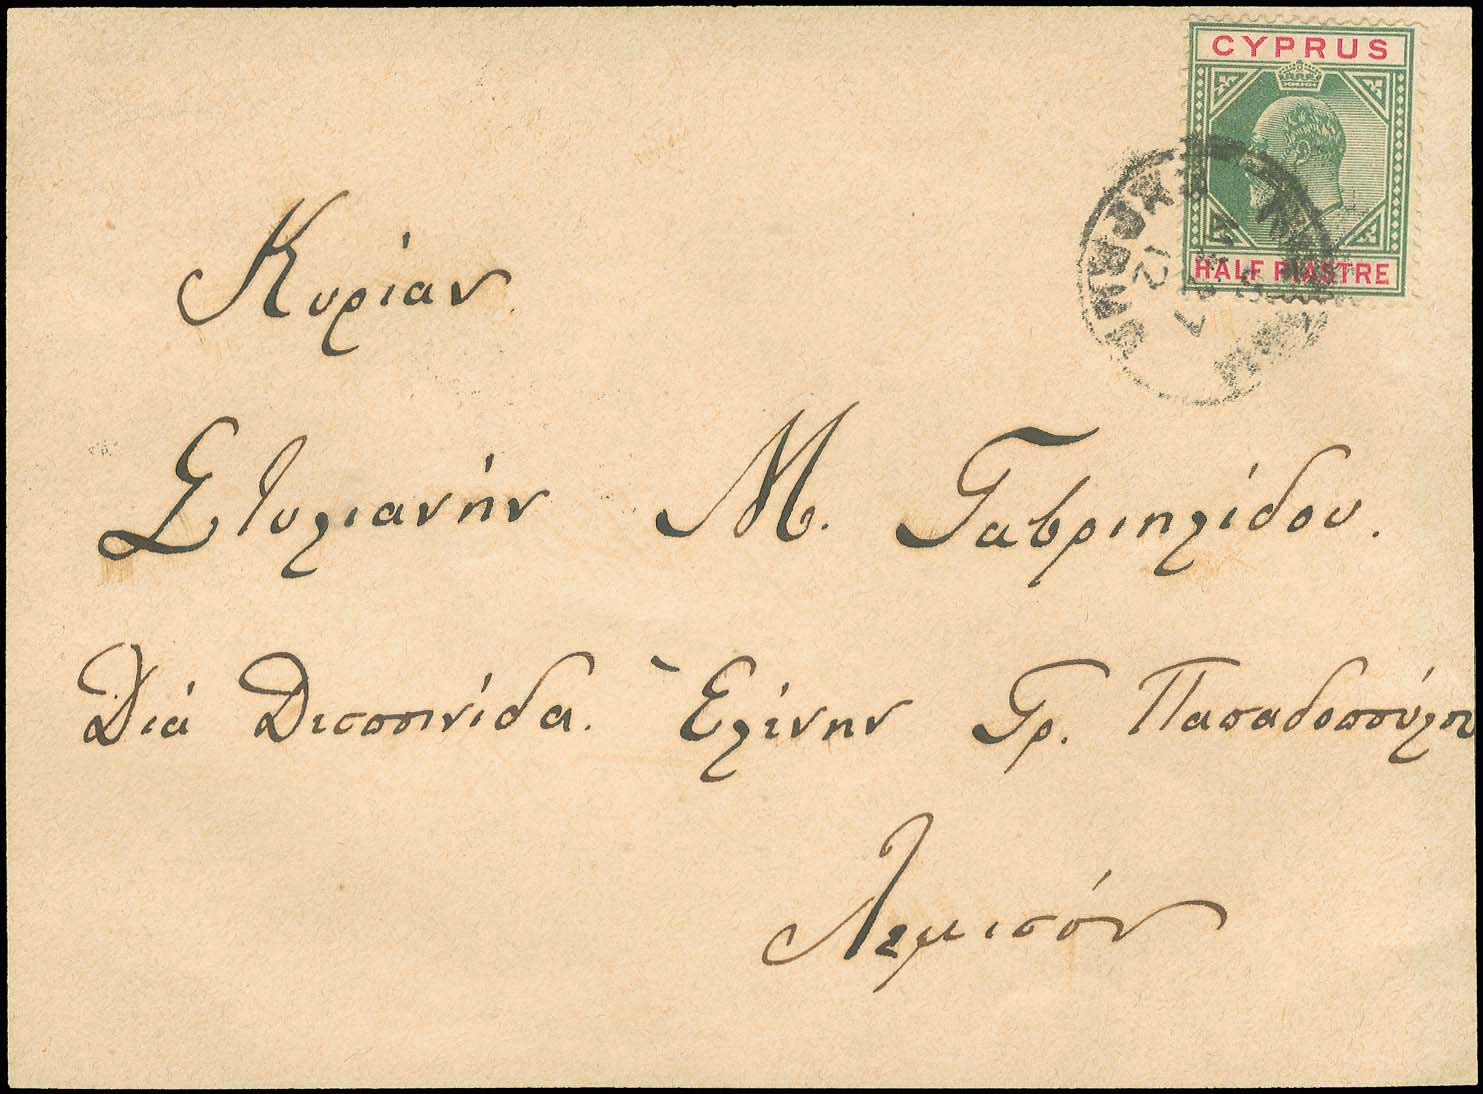 CYPRUS
HALF PIASTRE
12
Κυρίαν
Στυλιανήν Μ. Γαβριηλίδου.
Διά Δεσποινίδα. Ἑλένην Γρ. Παπαδοπούλου
Λεμισόν